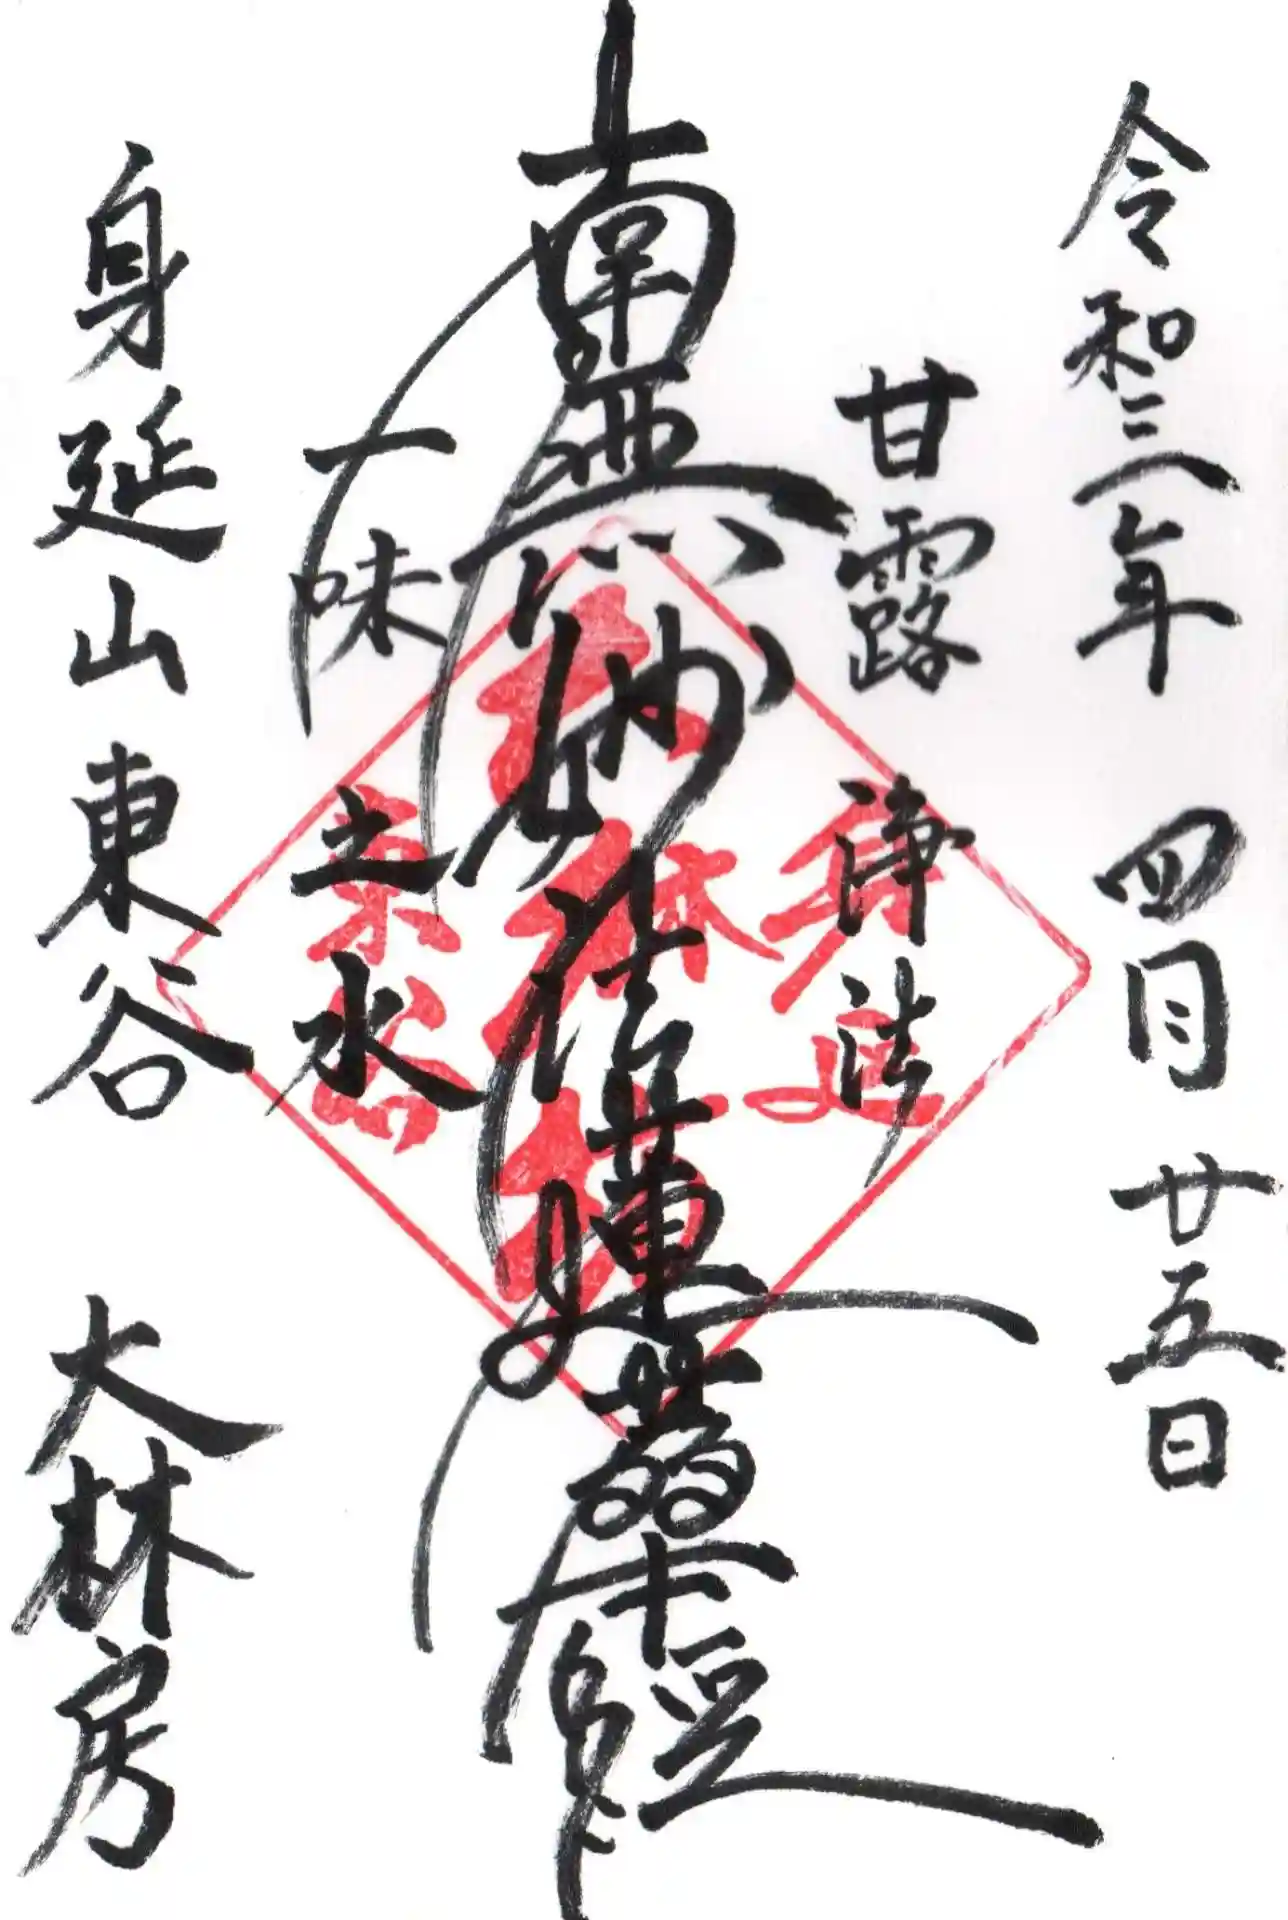 令和三年 四月 廿五日
甘露 浄法
南無妙法蓮華経
一味 之水
身延山 東谷 大林房
身延
大林坊
東谷